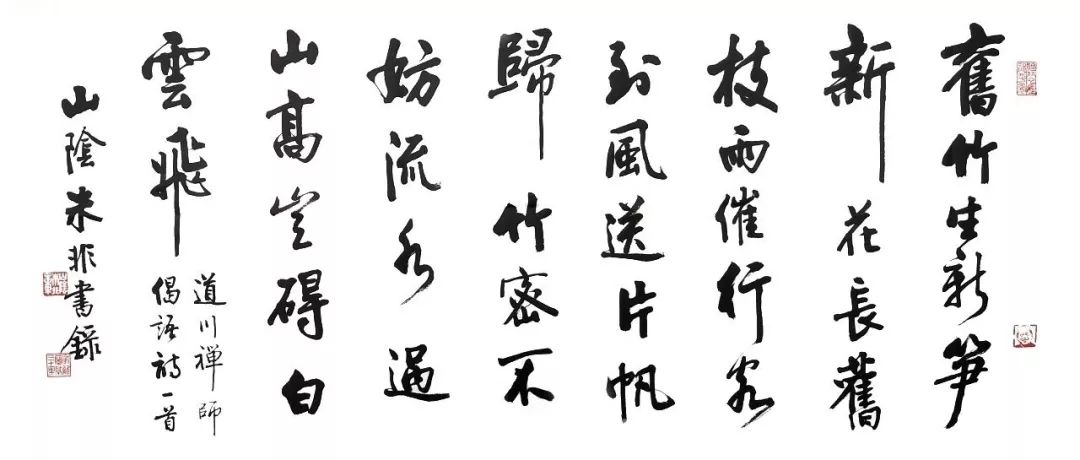 舊竹生新笋
新花長舊
枝雨催行客
到風送片帆
歸竹密不
妨流水過
山高豈碍白
雲飛
道川禅師
偈語詩一首
山陰朱非書録